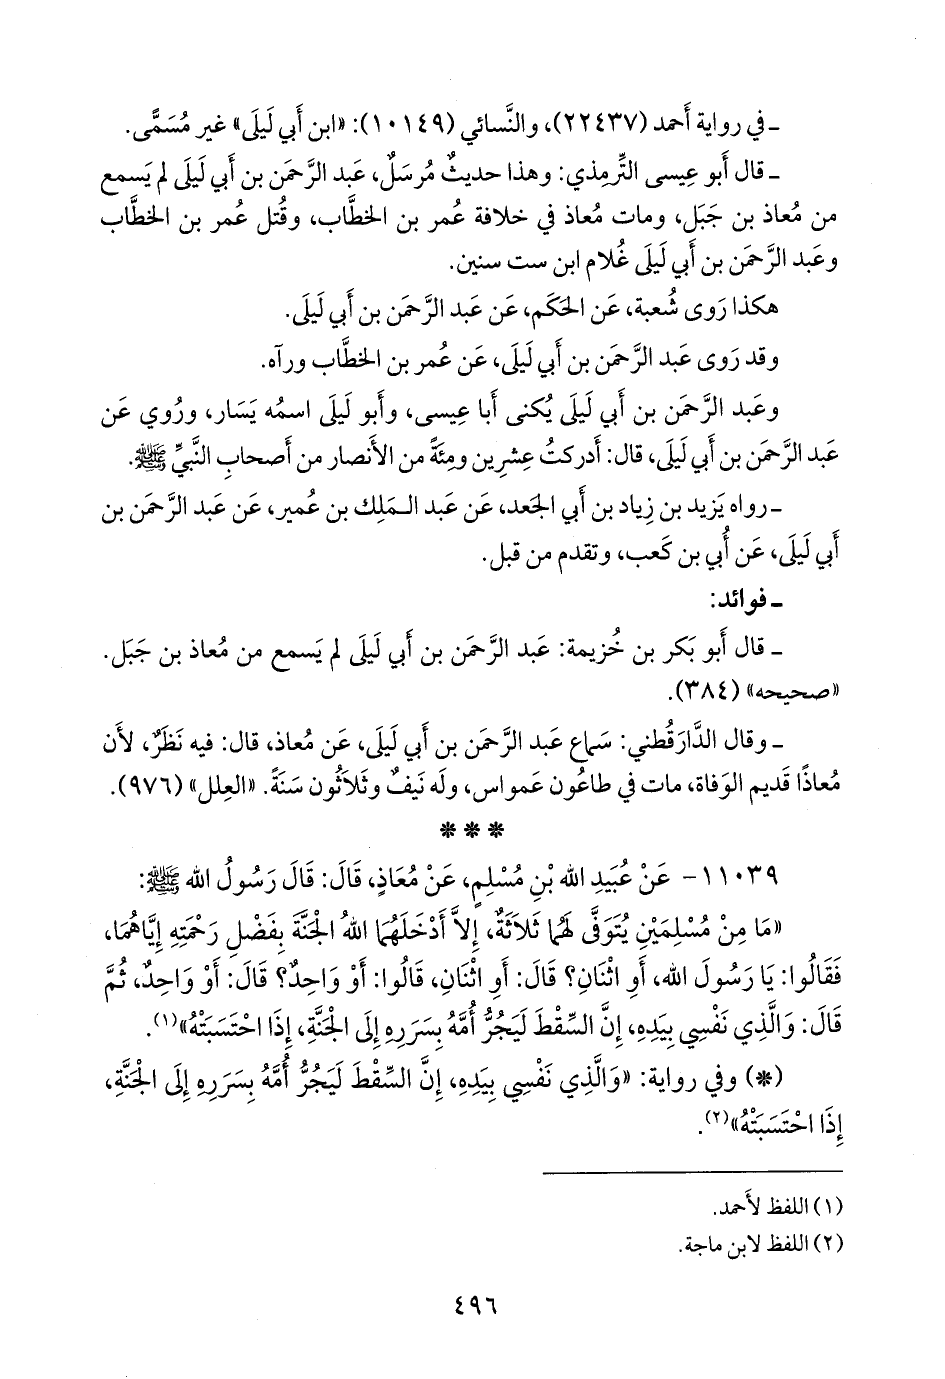 ـ في رواية أَحمد (٢٢٤٣٧)، والنَّسائي (١٠١٤٩): «ابن أَبي لَيلَى» غير مُسَمًّى.
ـ قال أَبو عِيسى التِّرمِذي: وهذا حديثٌ مُرسَلٌ، عَبد الرَّحمَن بن أَبي لَيلَى لم يَسمع
من مُعاذ بن جَبَل، ومات مُعاذ في خلافة عُمر بن الخطَّاب، وقُتل عُمر بن الخطَّاب
وعَبد الرَّحمَن بن أَبي لَيلَى غُلام ابن ست سنين.
هكذا رَوى شُعبة، عَن الحَكَم، عَن عَبد الرَّحمَن بن أَبي لَيلَى.
وقد رَوى عَبد الرَّحمَن بن أَبي لَيلَى، عَن عُمر بن الخطَّاب ورآه.
وعَبد الرَّحمَن بن أَبي لَيلَى يُكنى أَبا عِيسى، وأَبو لَيلَى اسمُه يَسَار، ورُوي عَن
عَبد الرَّحمَن بن أَبي لَيلَى، قال: أَدركتُ عِشرين ومِئَةً من الأَنصار من أَصحابِ النَّبيِّ ﷺ.
ـ رواه يَزيد بن زِياد بن أَبي الجَعد، عَن عَبد الـمَلِك بن عُمير، عَن عَبد الرَّحمَن بن
أَبي لَيلَى، عَن أُبي بن كَعب، وتقدم من قبل.
ـ فوائد:
ـ قال أَبو بَكر بن خُزيمة: عَبد الرَّحمَن بن أَبي لَيلَى لم يَسمع من مُعاذ بن جَبَل.
«صحيحه» (٣٨٤).
ـ وقال الدَّارَقُطني: سَماع عَبد الرَّحمَن بن أَبي لَيلَى، عَن مُعاذ، قال: فيه نَظَرٌ، لأَن
مُعاذًا قَديم الوَفاة، مات في طاعُون عَمواس، ولَه نَيفٌ وثلاَثُون سَنَةً. «العِلل» (٩٧٦).
* * *
١١٠٣٩ - عَنْ عُبَيدِ الله بْنِ مُسْلِمٍ، عَنْ مُعَاذٍ، قَالَ: قَالَ رَسُولُ الله ﷺ:
«مَا مِنْ مُسْلِمَيْنِ يُتَوَفَّى لَهُمَا ثَلاَثَةٌ، إِلاَّ أَدْخَلَهُمَا اللهُ الْجَنَّةَ بِفَضْلِ رَحْمَتِهِ إِيَّاهُمَا،
فَقَالُوا: يَا رَسُولَ الله، أَوِ اثْنَانِ؟ قَالَ: أَوِ اثْنَانِ، قَالُوا: أَوْ وَاحِدٌ؟ قَالَ: أَوْ وَاحِدٌ، ثُمَّ
قَالَ: وَالَّذِي نَفْسِي بِيَدِهِ، إِنَّ السِّقْطَ لَيَجُرُّ أُمَّهُ بِسَرَرِهِ إِلَى الْجَنَّةِ، إِذَا احْتَسَبَتْهُ»(١).
(*) وفي رواية: «وَالَّذِي نَفْسِي بِيَدِهِ، إِنَّ السِّقْطَ لَيَجُرُّ أُمَّهُ بِسَرَرِهِ إِلَى الْجَنَّةِ،
إِذَا احْتَسَبَتْهُ»(٢).
(١) اللفظ لأَحمد.
(٢) اللفظ لابن ماجة.
٤٩٦